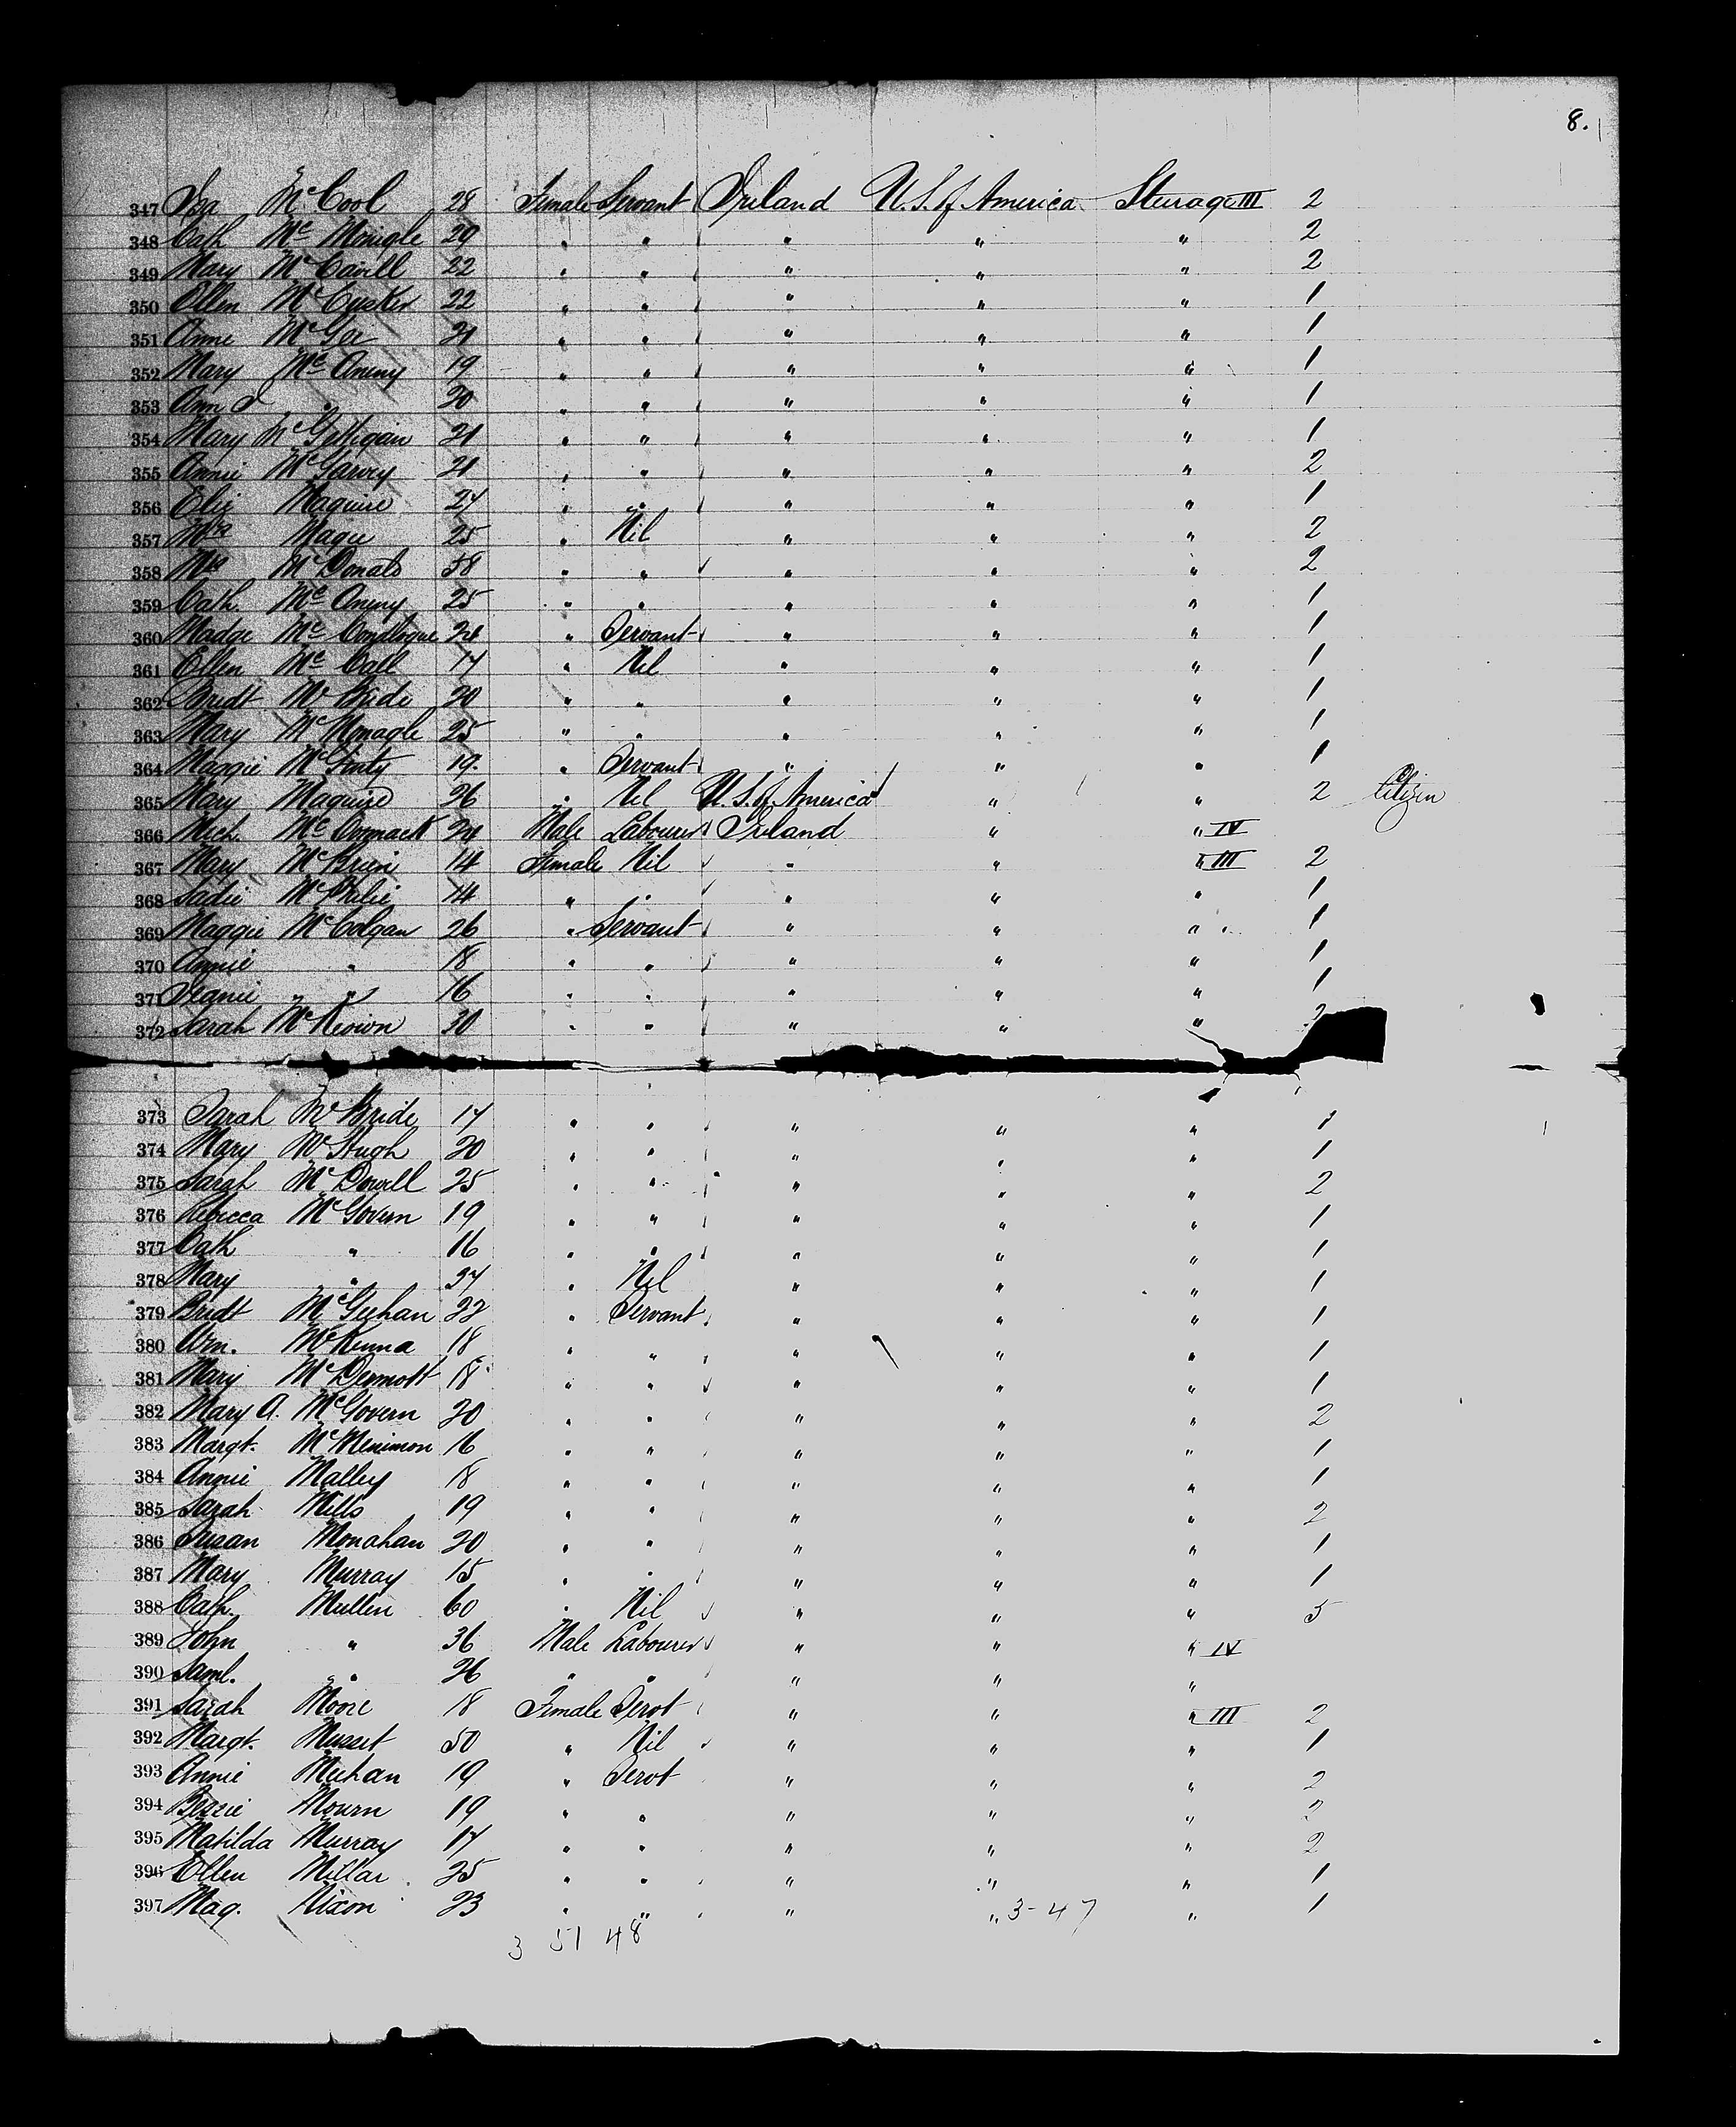 8.
347 Isa McCool 28 Female Servant Ireland U.S. of America Steerage III 2
348 Cath McMonigle 29 " " " " " 2
349 Mary McCavill 22 " " " " " 2
350 Ellen McCusker 22 " " " " " 1
351 Anne McGee 21 " " " " " 1
352 Mary McAneny 19 " " " " " 1
353 Ann J " 20 " " " " " 1
354 Mary McGettigan 21 " " " " " 1
355 Annie McGarvey 21 " " " " " 2
356 Eliz Maguire 24 " " " " " 1
357 Mrs Magee 25 " Nil " " " 2
358 Mrs McDonald 58 " " " " " 2
359 Cath. McAneny 25 " " " " " 1
360 Madge McConologue 24 " Servant " " " 1
361 Ellen McCall 17 " Nil " " " 1
362 Bridt McBride 20 " " " " " 1
363 Mary McMonagle 25 " " " " " 1
364 Maggie McGinty 19 " Servant " " " 1
365 Mary Maguire 26 " Nil U.S. of America " " 2 Citizen
366 Mich. McCormack 24 Male Labourer Ireland " " IV
367 Mary McBrien 14 Female Nil " " " III 2
368 Sadie 14 " " " " " 1
369 Maggie McColgan 26 " Servant " " " 1
370 Annie " 18 " " " " " 1
371 Jeanie " 16 " " " " " 1
372 Sarah McKeown 30 " " " " " 2
373 Sarah McBride 17 " " " " " 1
374 Mary McHugh 20 " " " " " 1
375 Sarah McDowell 25 " " " " " 2
376 Rebecca McGovern 19 " " " " " 1
377 Cath " 16 " " " " " 1
378 Mary " 37 " Nil " " " 1
379 Bridt McGeehan 22 " Servant " " " 1
380 Wm. McKenna 18 " " " " " 1
381 Mary McDermott 18 " " " " " 1
382 Mary A. McGovern 20 " " " " " 2
383 Margt. McMenimon 16 " " " " " 1
384 Annie Malley 18 " " " " " 1
385 Sarah Mills 19 " " " " " 2
386 Susan Monahan 20 " " " " " 1
387 Mary Murray 15 " " " " " 1
388 Cath. Mullen 60 " Nil " " " 5
389 John " 36 Male Labourer " " " IV
390 Saml. " 26 " " " " "
391 Sarah Moore 18 Female Servt " " " III 2
392 Margt. 50 " Nil " " " 1
393 Annie Meehan 19 " Servt " " " 2
394 Bessie Mourn 19 " " " " " 2
395 Matilda Murray 17 " " " " " 2
396 Ellen Millar 25 " " " " " 1
397 Mag. Nixon 23 " " " " 3-47 " 1
3 51 48